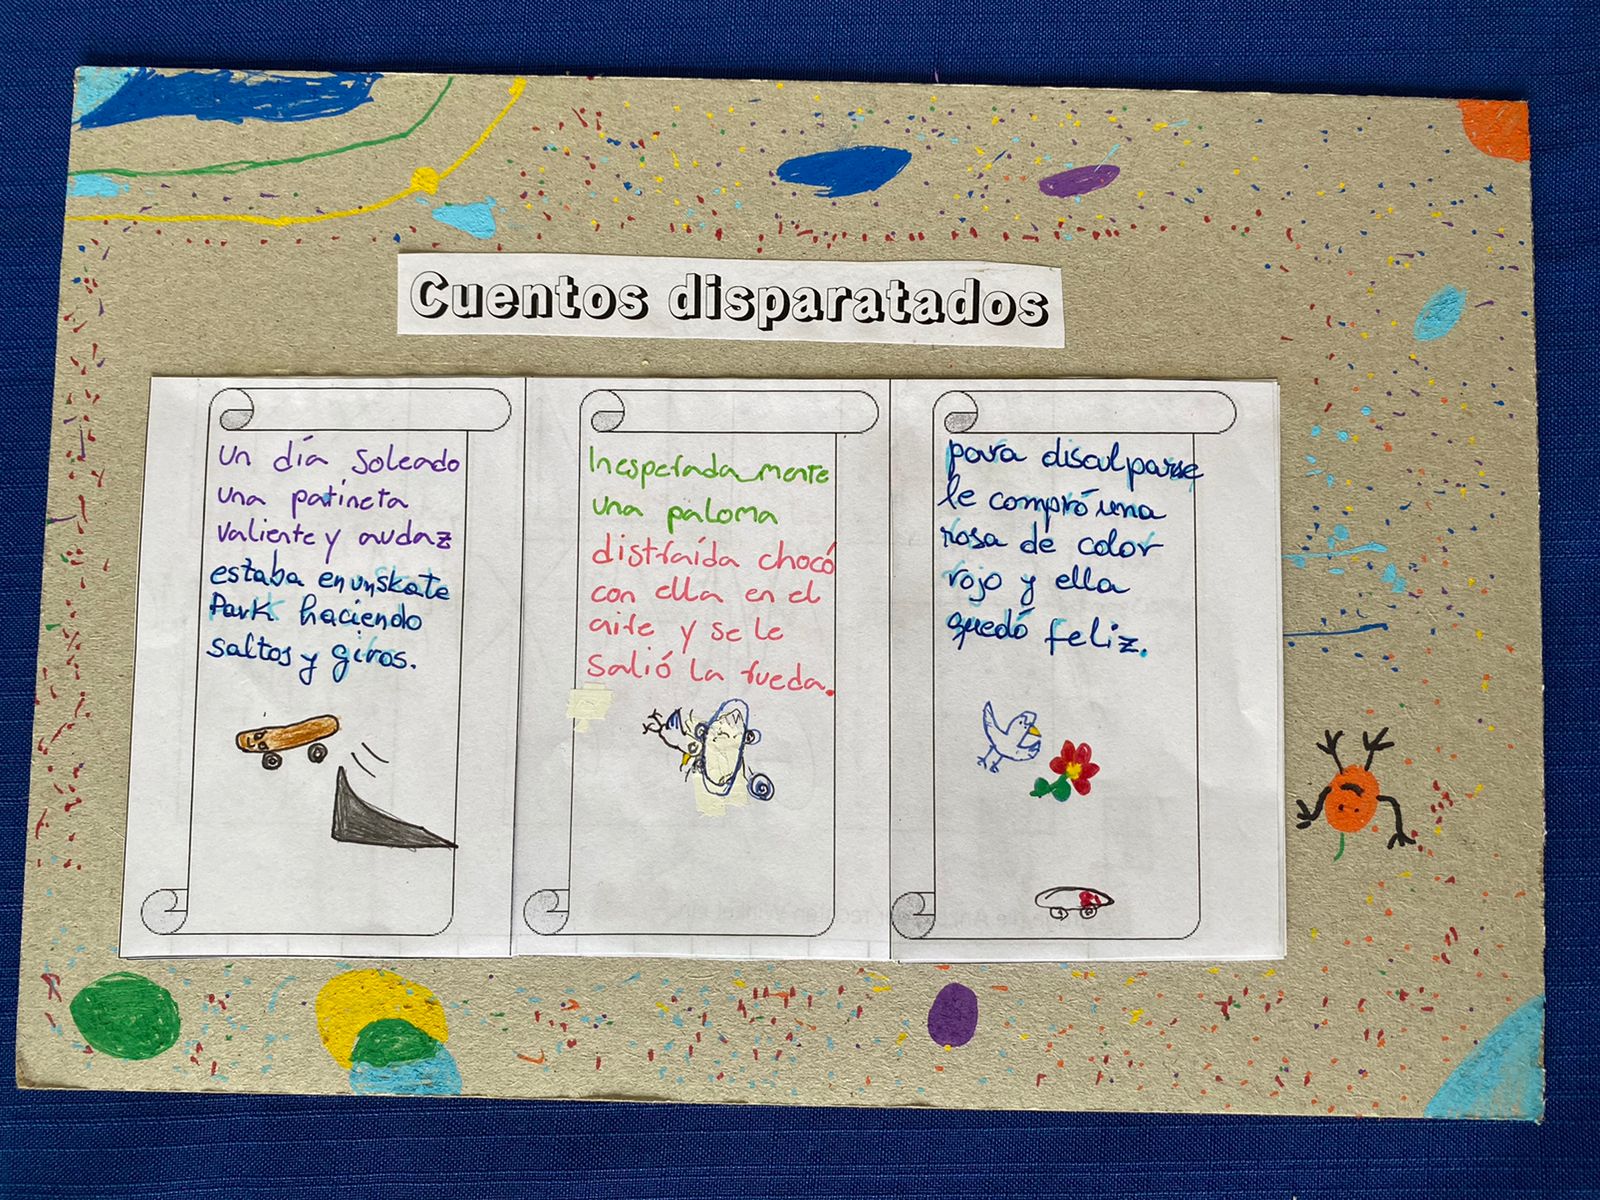 Cuentos disparatados
Un día soleado
una patineta
valiente y audaz
estaba en un skate
Park haciendo
saltos y giros.
Inesperadamente
una paloma
distraída chocó
con ella en el
aire y se le
salió la rueda.
para disculparse
le compró una
rosa de color
rojo y ella
quedó feliz.